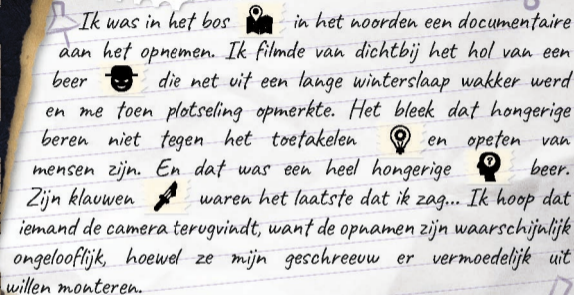 Ik was in het bos in het noorden een documentaire
aan het opnemen. Ik filmde van dichtbij het hol van een
beer die net uit een lange winterslaap wakker werd
en me toen plotseling opmerkte. Het bleek dat hongerige
beren niet tegen het toetakelen en opeten van
mensen zijn. En dat was een heel hongerige beer.
Zijn klauwen waren het laatste dat ik zag... Ik hoop dat
iemand de camera terugvindt, want de opnamen zijn waarschijnlijk
ongelooflijk, hoewel ze mijn geschreeuw er vermoedelijk uit
willen monteren.